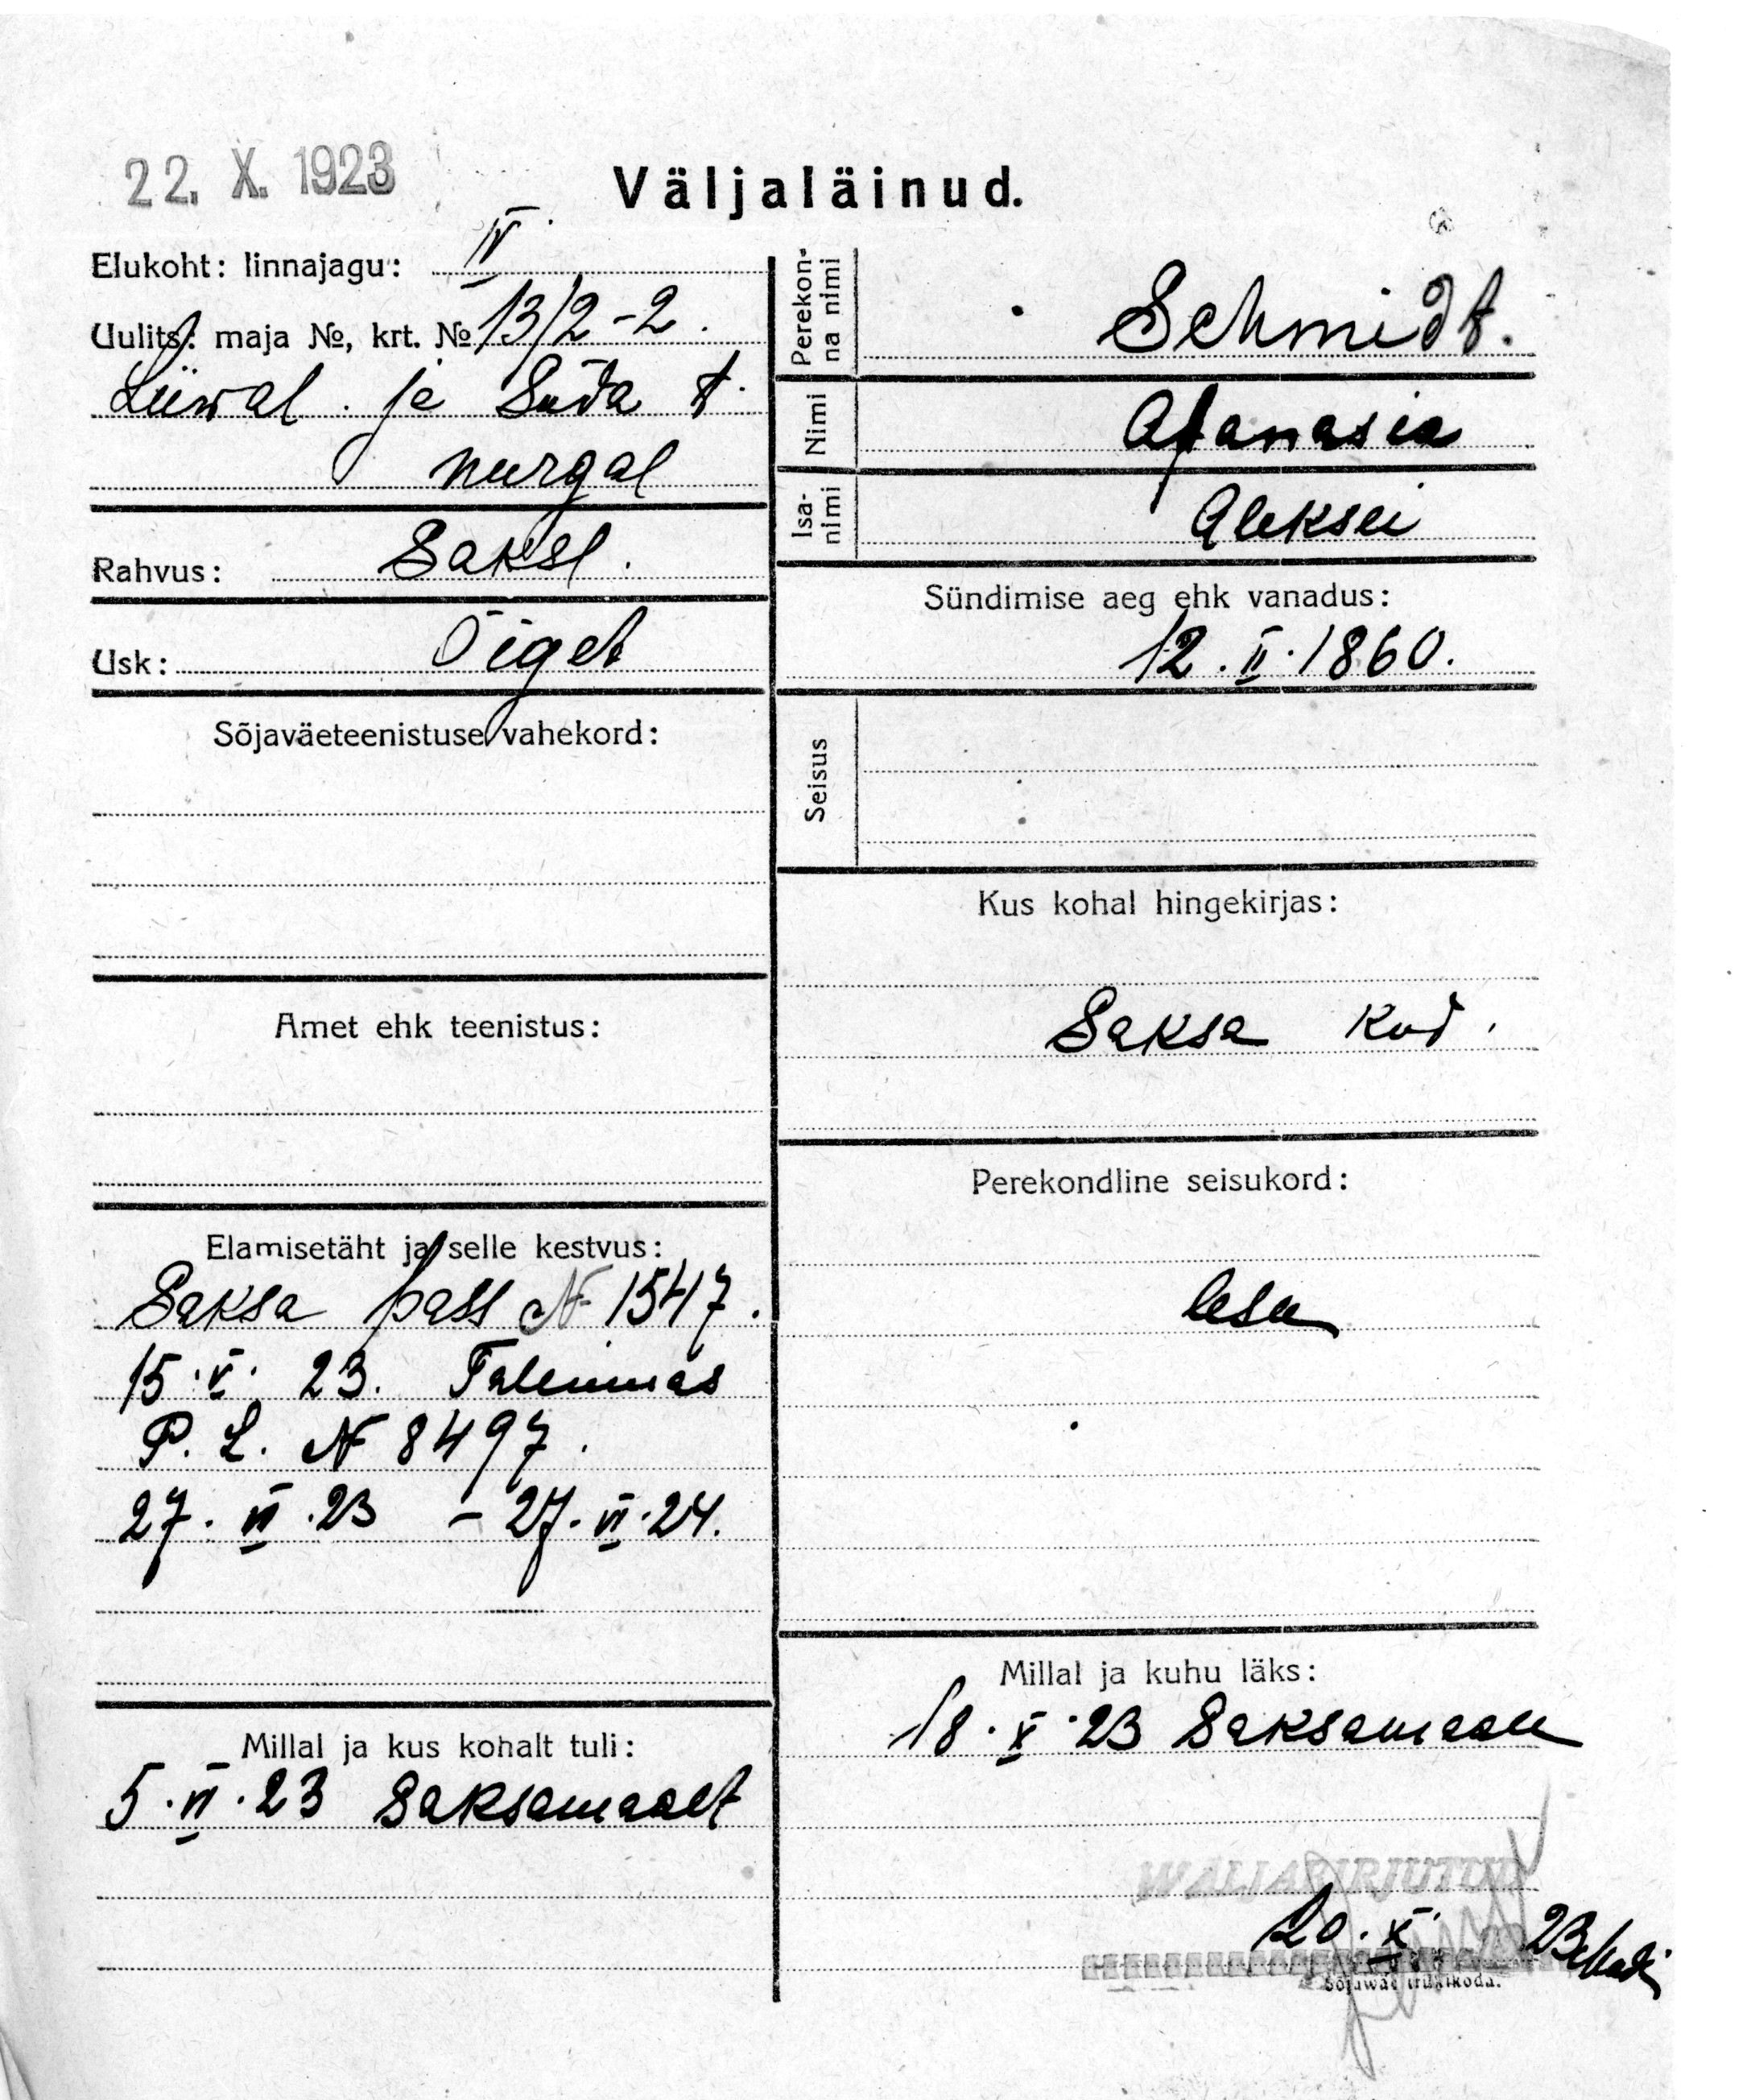 22. X. 1923
Väljaläinud.
Elukoht: linnajagu: IV
Uulits: maja №, krt. № 13/2-2.
Liiwal. ja Süda t.
nurgal
Rahvus: Saksl.
Usk: Õiget
Sõjaväeteenistuse vahekord:
Amet ehk teenistus:
Elamisetäht ja selle kestvus:
Saksa pass № 1547.
15.V. 23. Talinnas
P. L. № 8497.
27. VI. 23 - 27. VI. 24.
Millal ja kus kohalt tuli:
5. VI. 23 Saksamaalt
Perekon-
na nimi
Schmidt.
Nimi
Afanasia
Isa-
nimi
Aleksei
Sündimise aeg ehk vanadus:
12. II. 1860.
Seisus
Kus kohal hingekirjas:
Saksa kod.
Perekondline seisukord:
lesk
Millal ja kuhu läks:
18. X. 23 Saksamaale
WÄLJAKIRJUTUD
20. X. 23
Sõjawäe trükikoda.